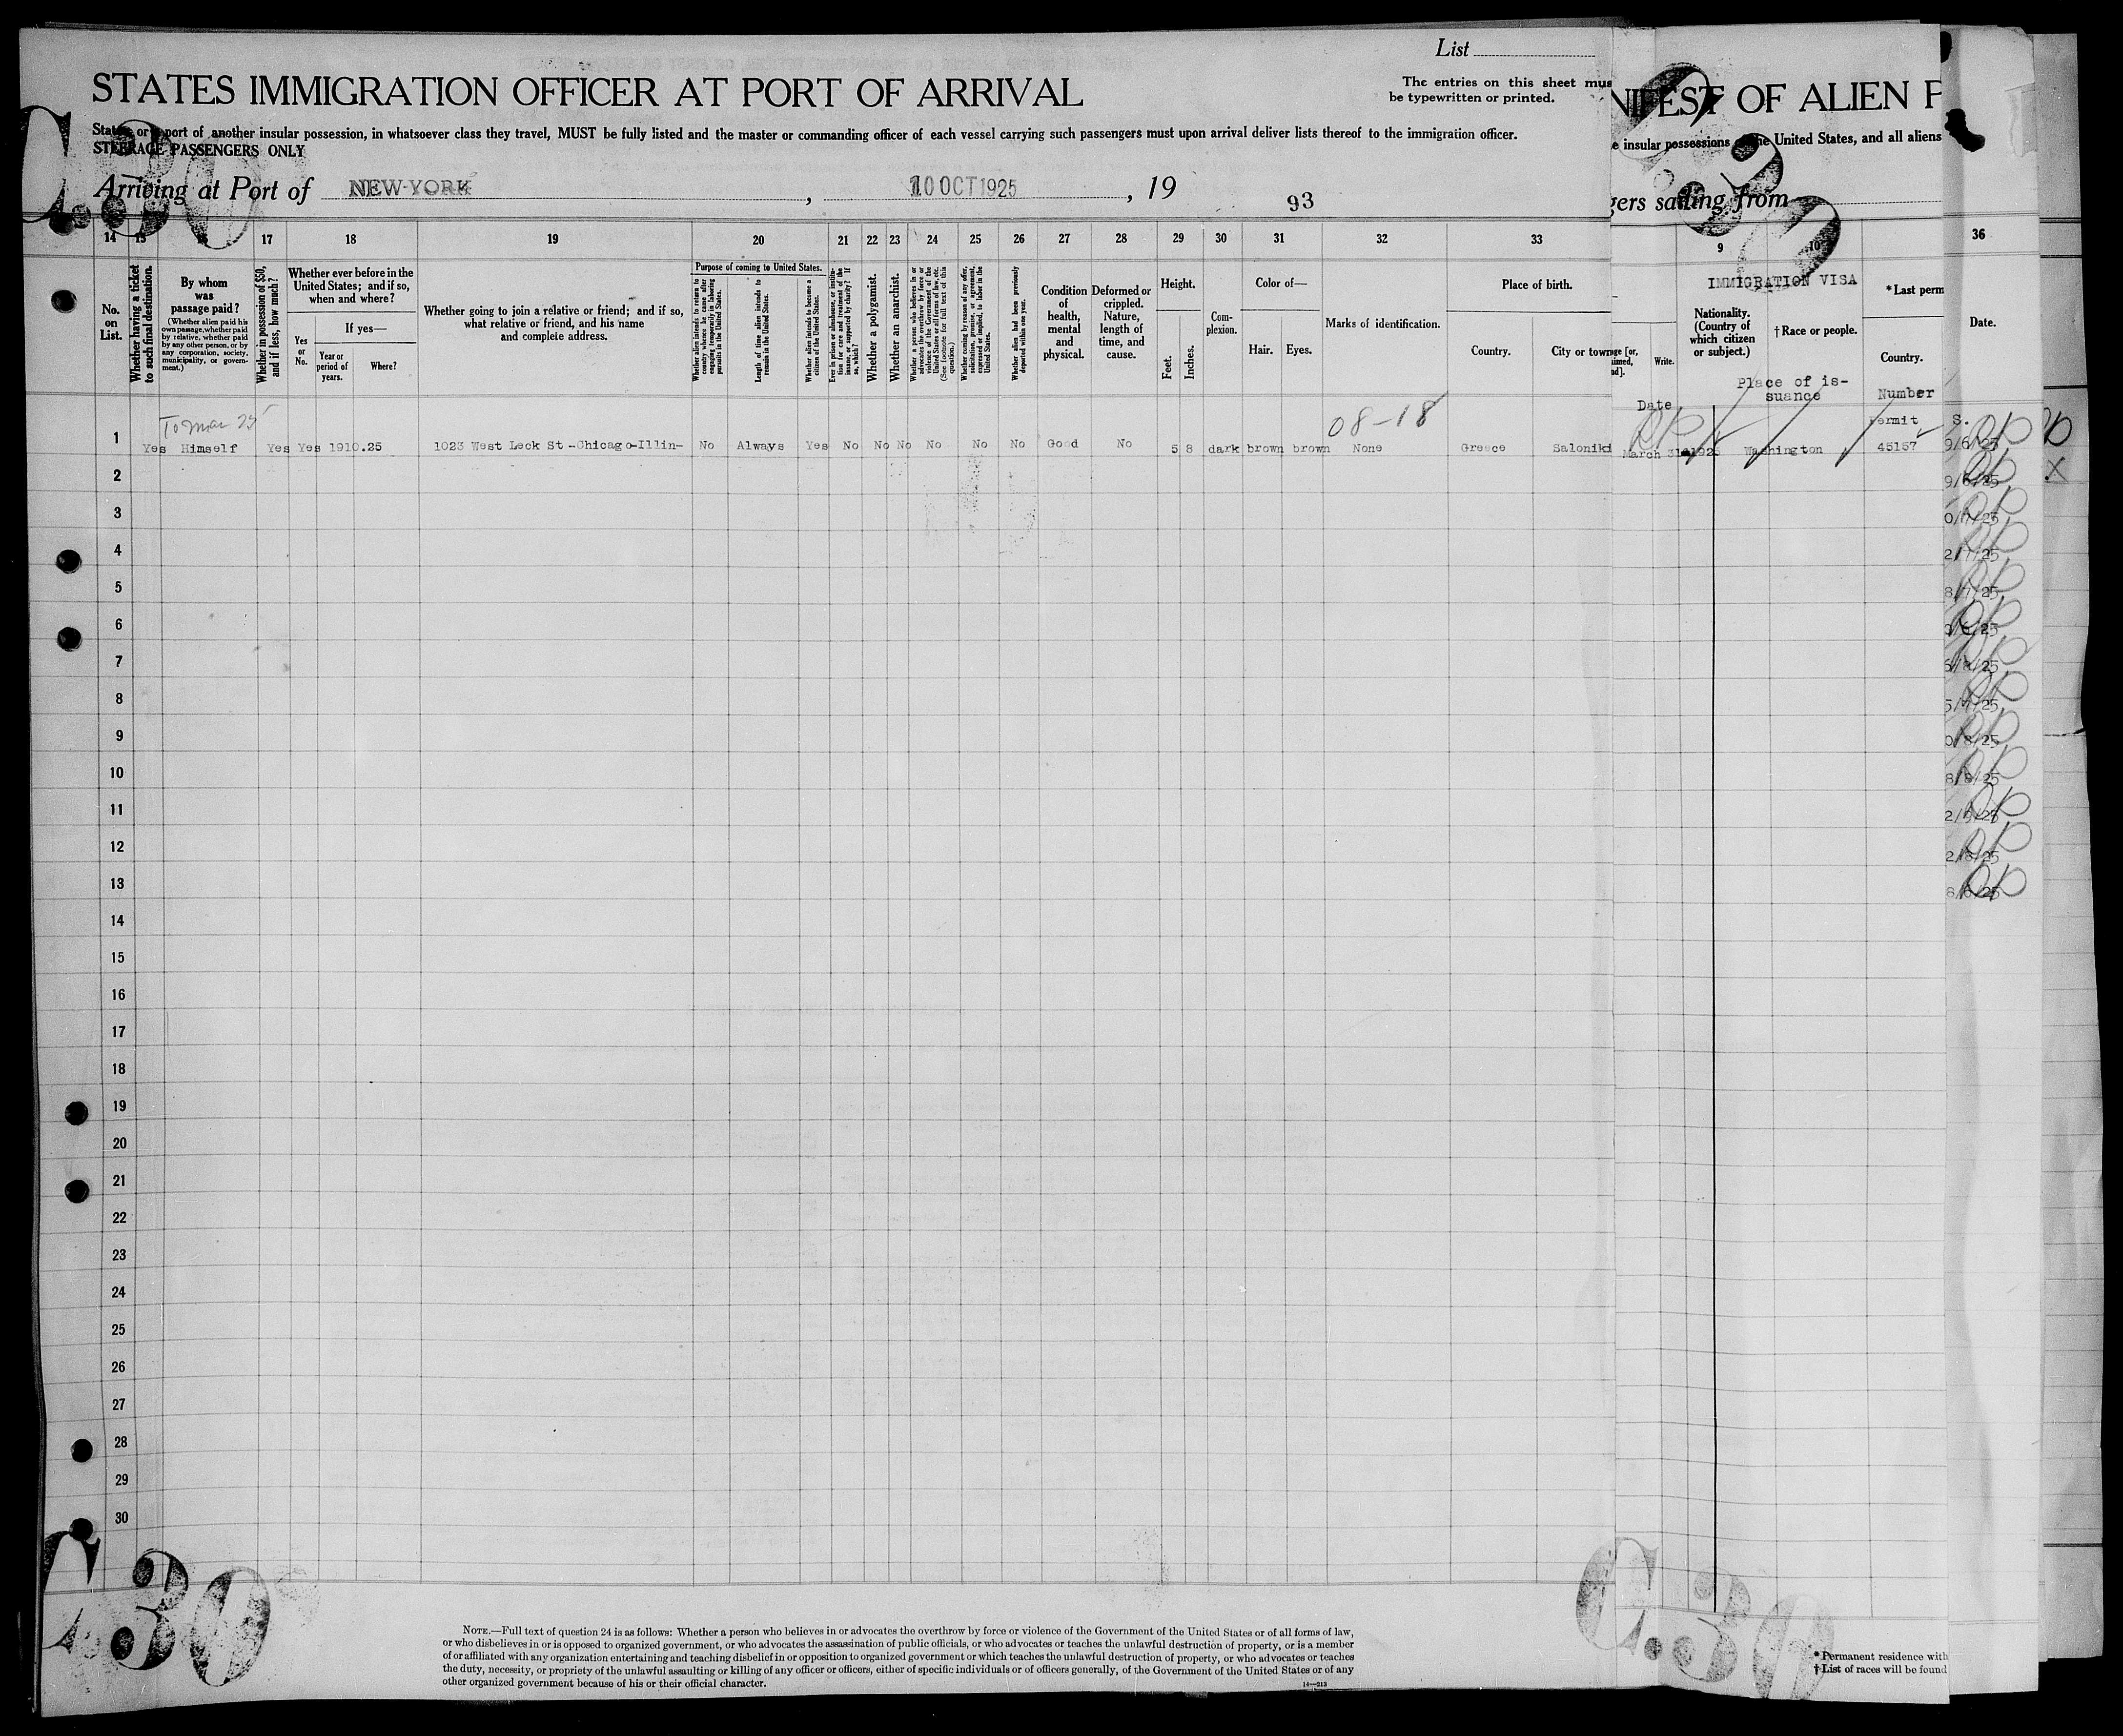 List
STATES IMMIGRATION OFFICER AT PORT OF ARRIVAL
The entries on this sheet mus
be typewritten or printed.
States or port of another insular possession, in whatsoever class they travel, MUST be fully listed and the master or commanding officer of each vessel carrying such passengers must upon arrival deliver lists thereof to the immigration officer.
STEERAGE PASSENGERS ONLY
Arriving at Port of NEW-YORK, 10 OCT 1925, 19
93
NIFEST OF ALIEN P
e insular possessions of the United States, and all aliens
gers sailing from
14 15 16 17 18 19 20 21 22 23 24 25 26 27 28 29 30 31 32 33
9 10
36
No. on List.
Whether having a ticket to such final destination.
By whom was passage paid?
(Whether alien paid his own passage, whether paid by relative, whether paid by any other person, or by any corporation, society, municipality, or government.)
Whether in possession of $50, and if less, how much?
Whether ever before in the United States; and if so, when and where?
Yes or No.
If yes—
Year or period of years.
Where?
Whether going to join a relative or friend; and if so, what relative or friend, and his name and complete address.
Purpose of coming to United States.
Whether alien intends to return to country whence he came after engaging temporarily in laboring pursuits in the United States.
Length of time alien intends to remain in the United States.
Whether alien intends to become a citizen of the United States.
Ever in prison or almshouse, or institution for care and treatment of the insane, or supported by charity? If so, which?
Whether a polygamist.
Whether an anarchist.
Whether a person who believes in or advocates the overthrow by force or violence of the Government of the United States or all forms of law, etc. (See footnote for full text of this question.)
Whether coming by reason of any offer, solicitation, promise, or agreement, expressed or implied, to labor in the United States.
Whether alien had been previously deported within one year.
Condition of health, mental and physical.
Deformed or crippled. Nature, length of time, and cause.
Height.
Feet.
Inches.
Complexion.
Color of—
Hair.
Eyes.
Marks of identification.
Place of birth.
Country.
City or town
Write.
Date
IMMIGRATION VISA
Nationality. (Country of which citizen or subject.)
†Race or people.
Place of issuance
*Last perm
Country.
Number
Date.
To Mar 25
08-18
1 Yes Himself Yes Yes 1910.25 1023 West Leck St-Chicago-Illin- No Always Yes No No No No No No Good No 5 8 dark brown brown None Greece Saloniki
March 31 1925 Washington
Permit
45157
S.
9/6/25
9/6/25
0/7/25
2/7/25
8/7/25
6/8/25
5/7/25
0/8/25
8/8/25
2/9/25
2/8/25
8/6/25
2
3
4
5
6
7
8
9
10
11
12
13
14
15
16
17
18
19
20
21
22
23
24
25
26
27
28
29
30
C.30
C.30
C.30
NOTE.—Full text of question 24 is as follows: Whether a person who believes in or advocates the overthrow by force or violence of the Government of the United States or of all forms of law,
or who disbelieves in or is opposed to organized government, or who advocates the assassination of public officials, or who advocates or teaches the unlawful destruction of property, or is a member
of or affiliated with any organization entertaining and teaching disbelief in or opposition to organized government or which teaches the unlawful destruction of property, or who advocates or teaches
the duty, necessity, or propriety of the unlawful assaulting or killing of any officer or officers, either of specific individuals or of officers generally, of the Government of the United States or of any
other organized government because of his or their official character.
14—213
* Permanent residence with
† List of races will be found